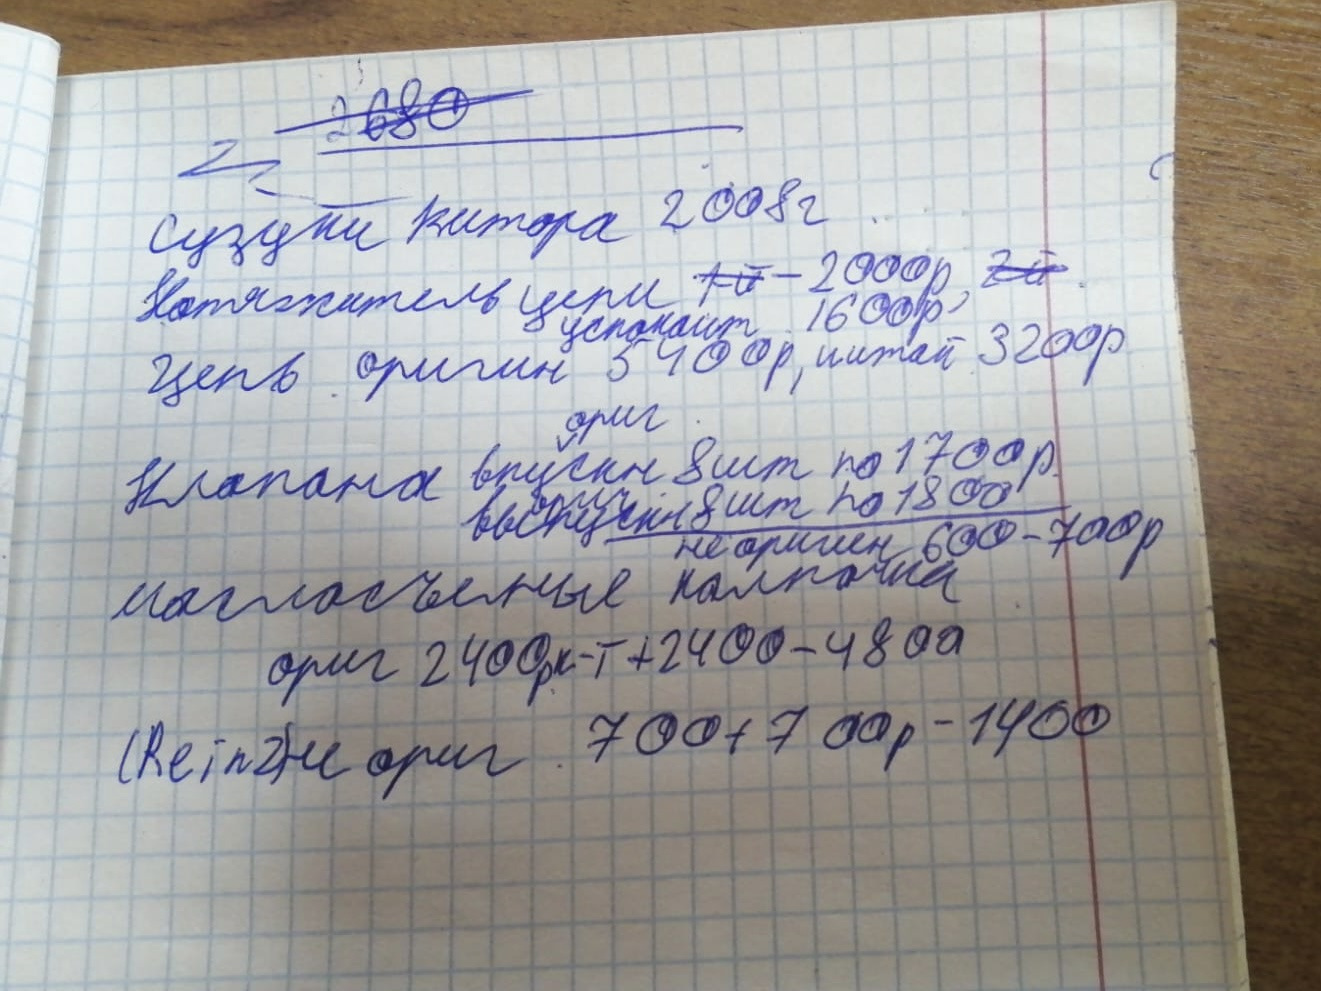 2680
Сузуки Витора 2008г
Натяжитель цепи 1й – 2000р, 2й
успокоит 1600р
Цепь оригин 5400р, китай 3200р
ориг
Клапана впускн 8шт по 1700р.
ориг
выпускн 8шт по 1800
не оригин 600-700р
маслосъемные колпачки
ориг 2400р к-т+2400-4800
(Reinz) не ориг. 700+700р-1400